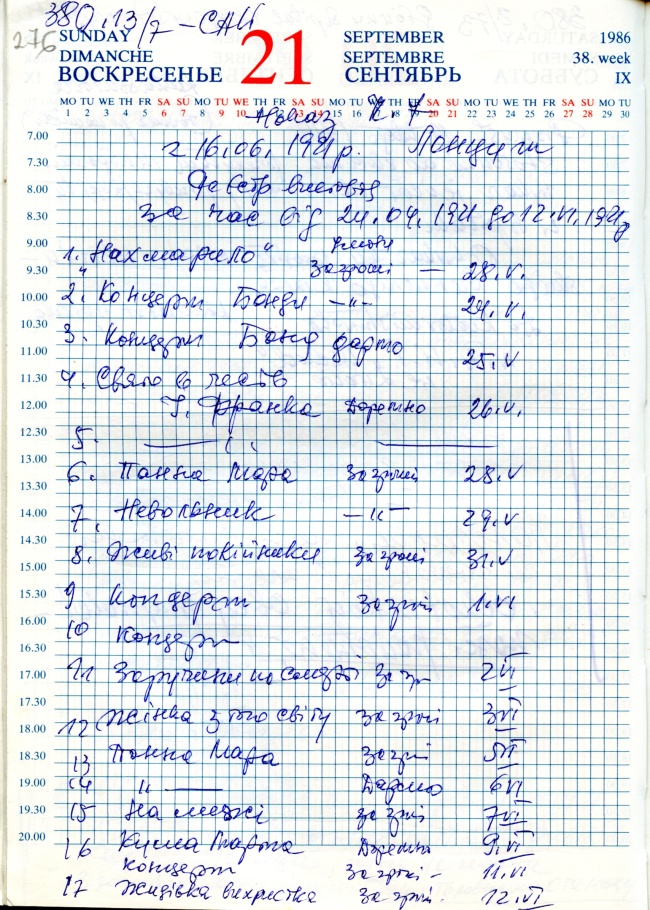 380.13/7 - САН
276
SUNDAY 21 SEPTEMBER 1986
DIMANCHE SEPTEMBRE 38. week
ВОСКРЕСЕНЬЕ СЕНТЯБРЬ IX
MO TU WE TH FR SA SU MO TU WE TH FR SA SU MO TU WE TH FR SA SU MO TU WE TH FR SA SU MO TU
1 2 3 4 5 6 7 8 9 10 11 12 13 14 15 16 17 18 19 20 21 22 23 24 25 26 27 28 29 30
Наказ Ч. 7
7.00
з 16.06. 1921 р. Ланцути
7.30
Реєстр вистав
8.00
за час від 24.04. 1921 до 12.VI. 1921 р
8.30
9.00
1. "Нахмарило" за гроші — 28.V.
9.30
2. Концерт Бонди —"— 24.V.
10.00
10.30
3. Концерт Бонд дармо 25.V
11.00
4. Свято в честь
11.30
І. Франка Даремно 26.V.
12.00
5. —— " ——
12.30
13.00
6. Панна Мара за гроші 28.V
13.30
7. Невольник —"— 29.V
14.00
14.30
8. Живі покійники за гроші 31.V
15.00
9 Концерт за гроші 1.VI
15.30
16.00
10 Концерт
16.30
11 Заручини по смерті за гр 2 VI
17.00
17.30
12 Жінка з того світу за гроші 3 VI
18.00
13 Панна Мара за гроші 5 VI
18.30
14 " —— Дармо 6 VI
19.00
15 На межі за гроші 7 VI
19.30
20.00
16 Кума Марта Даремно 9.VI
концерт за гроші - 11.VI
17 Жидівка вихристка за гроші. 12.VI